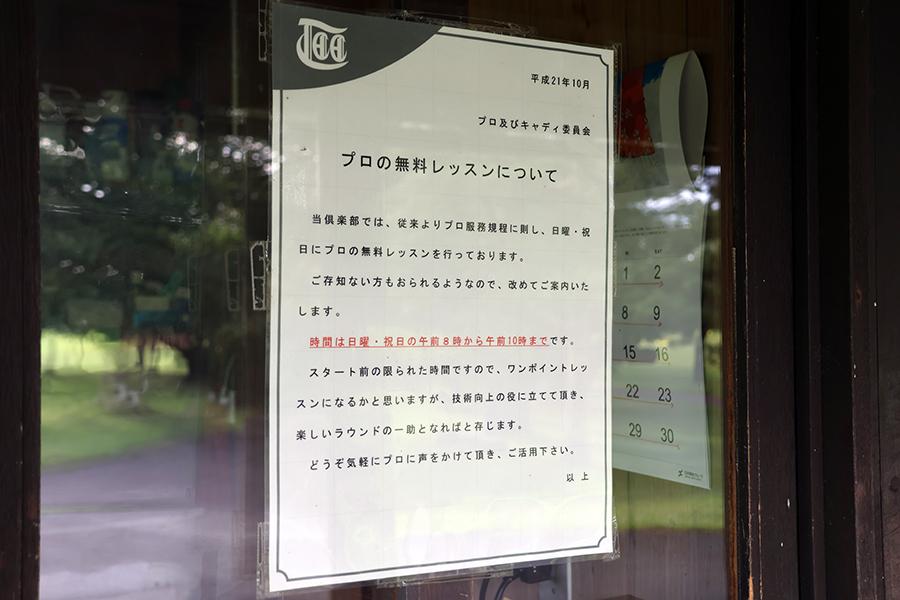 平成21年10月
プロ及びキャディ委員会
プロの無料レッスンについて
当倶楽部では、従来よりプロ服務規程に則し、日曜・祝
日にプロの無料レッスンを行っております。
ご存知ない方もおられるようなので、改めてご案内いた
します。
時間は日曜・祝日の午前8時から午前10時までです。
スタート前の限られた時間ですので、ワンポイントレッ
スンになるかと思いますが、技術向上の役に立てて頂き、
楽しいラウンドの一助となればと存じます。
どうぞ気軽にプロに声をかけて頂き、ご活用下さい。
以上
SAT
1 2
8 9
15 16
22 23
29 30